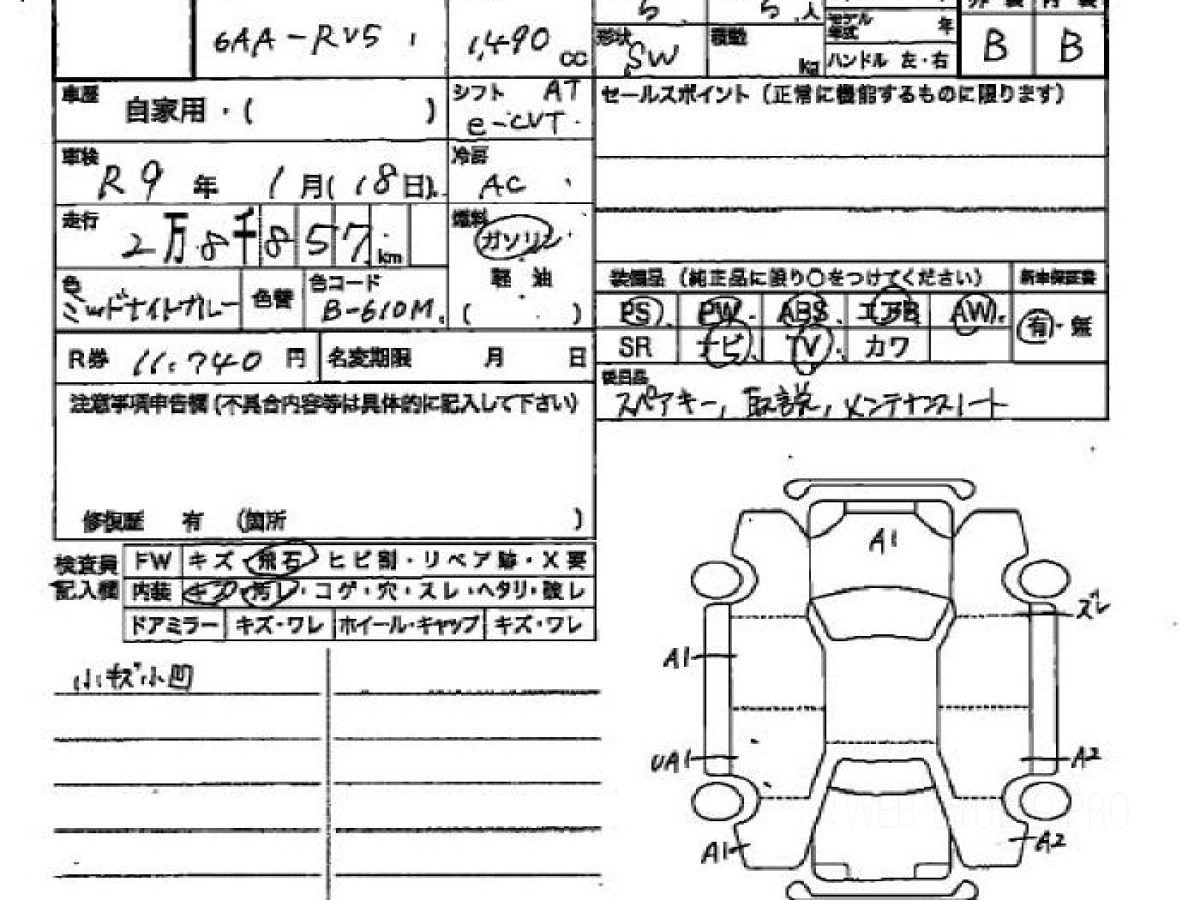 5 5 人
外装 内装
6AA-RV5 1,490 cc
形状 SW 積載 kg
モデル年式 年
ハンドル 左・右
B B
車歴 自家用・( )
シフト AT e-CVT
セールスポイント (正常に機能するものに限ります)
車検 R9年 1月(18日)
冷房 AC
走行 2万8千857km
燃料 ガソリン
軽油
( )
色 ミッドナイトガレー 色替 色コード B-610M
装備品 (純正品に限り○をつけてください) 新車保証書
PS PW ABS エアB AW 有・無
SR ナビ TV カワ
R券 11,740円 名変期限 月 日
後日品
スペアキー, 取説, メンテナンスノート
注意事項申告欄(不具合内容等は具体的に記入して下さい)
修復歴 有 (箇所 )
検査員記入欄
FW キズ・飛石・ヒビ割・リペア跡・X要
内装 キズ・汚レ・コゲ・穴・スレ・ヘタリ・破レ
ドアミラー キズ・ワレ ホイール・キャップ キズ・ワレ
小キズ小凹
A1
ズレ
A1
UA1
A2
A1
A2